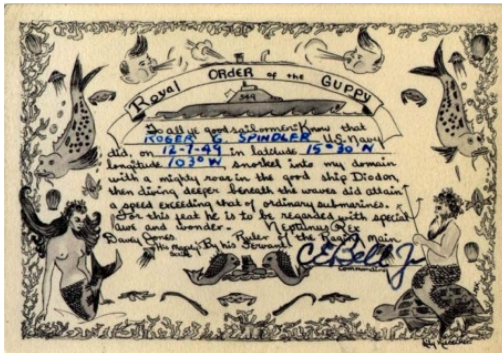 Royal ORDER of the GUPPY
349
To all ye good sailormen: Know that
ROGER G SPINDLER U.S. Navy
did, on 12-7-49 in latitude 15°30'N
longitude 103°W snorkel into my domain
with a mighty roar in the good ship Diodon,
then diving deeper beneath the waves did attain
a speed exceeding that of ordinary submarines.
For this feat he is to be regarded with special
awe and wonder. Neptunus Rex
Davey Jones Ruler of the Raging Main
His Majesty's By his Servant
Scribe
C E Bell Jr
Commanding